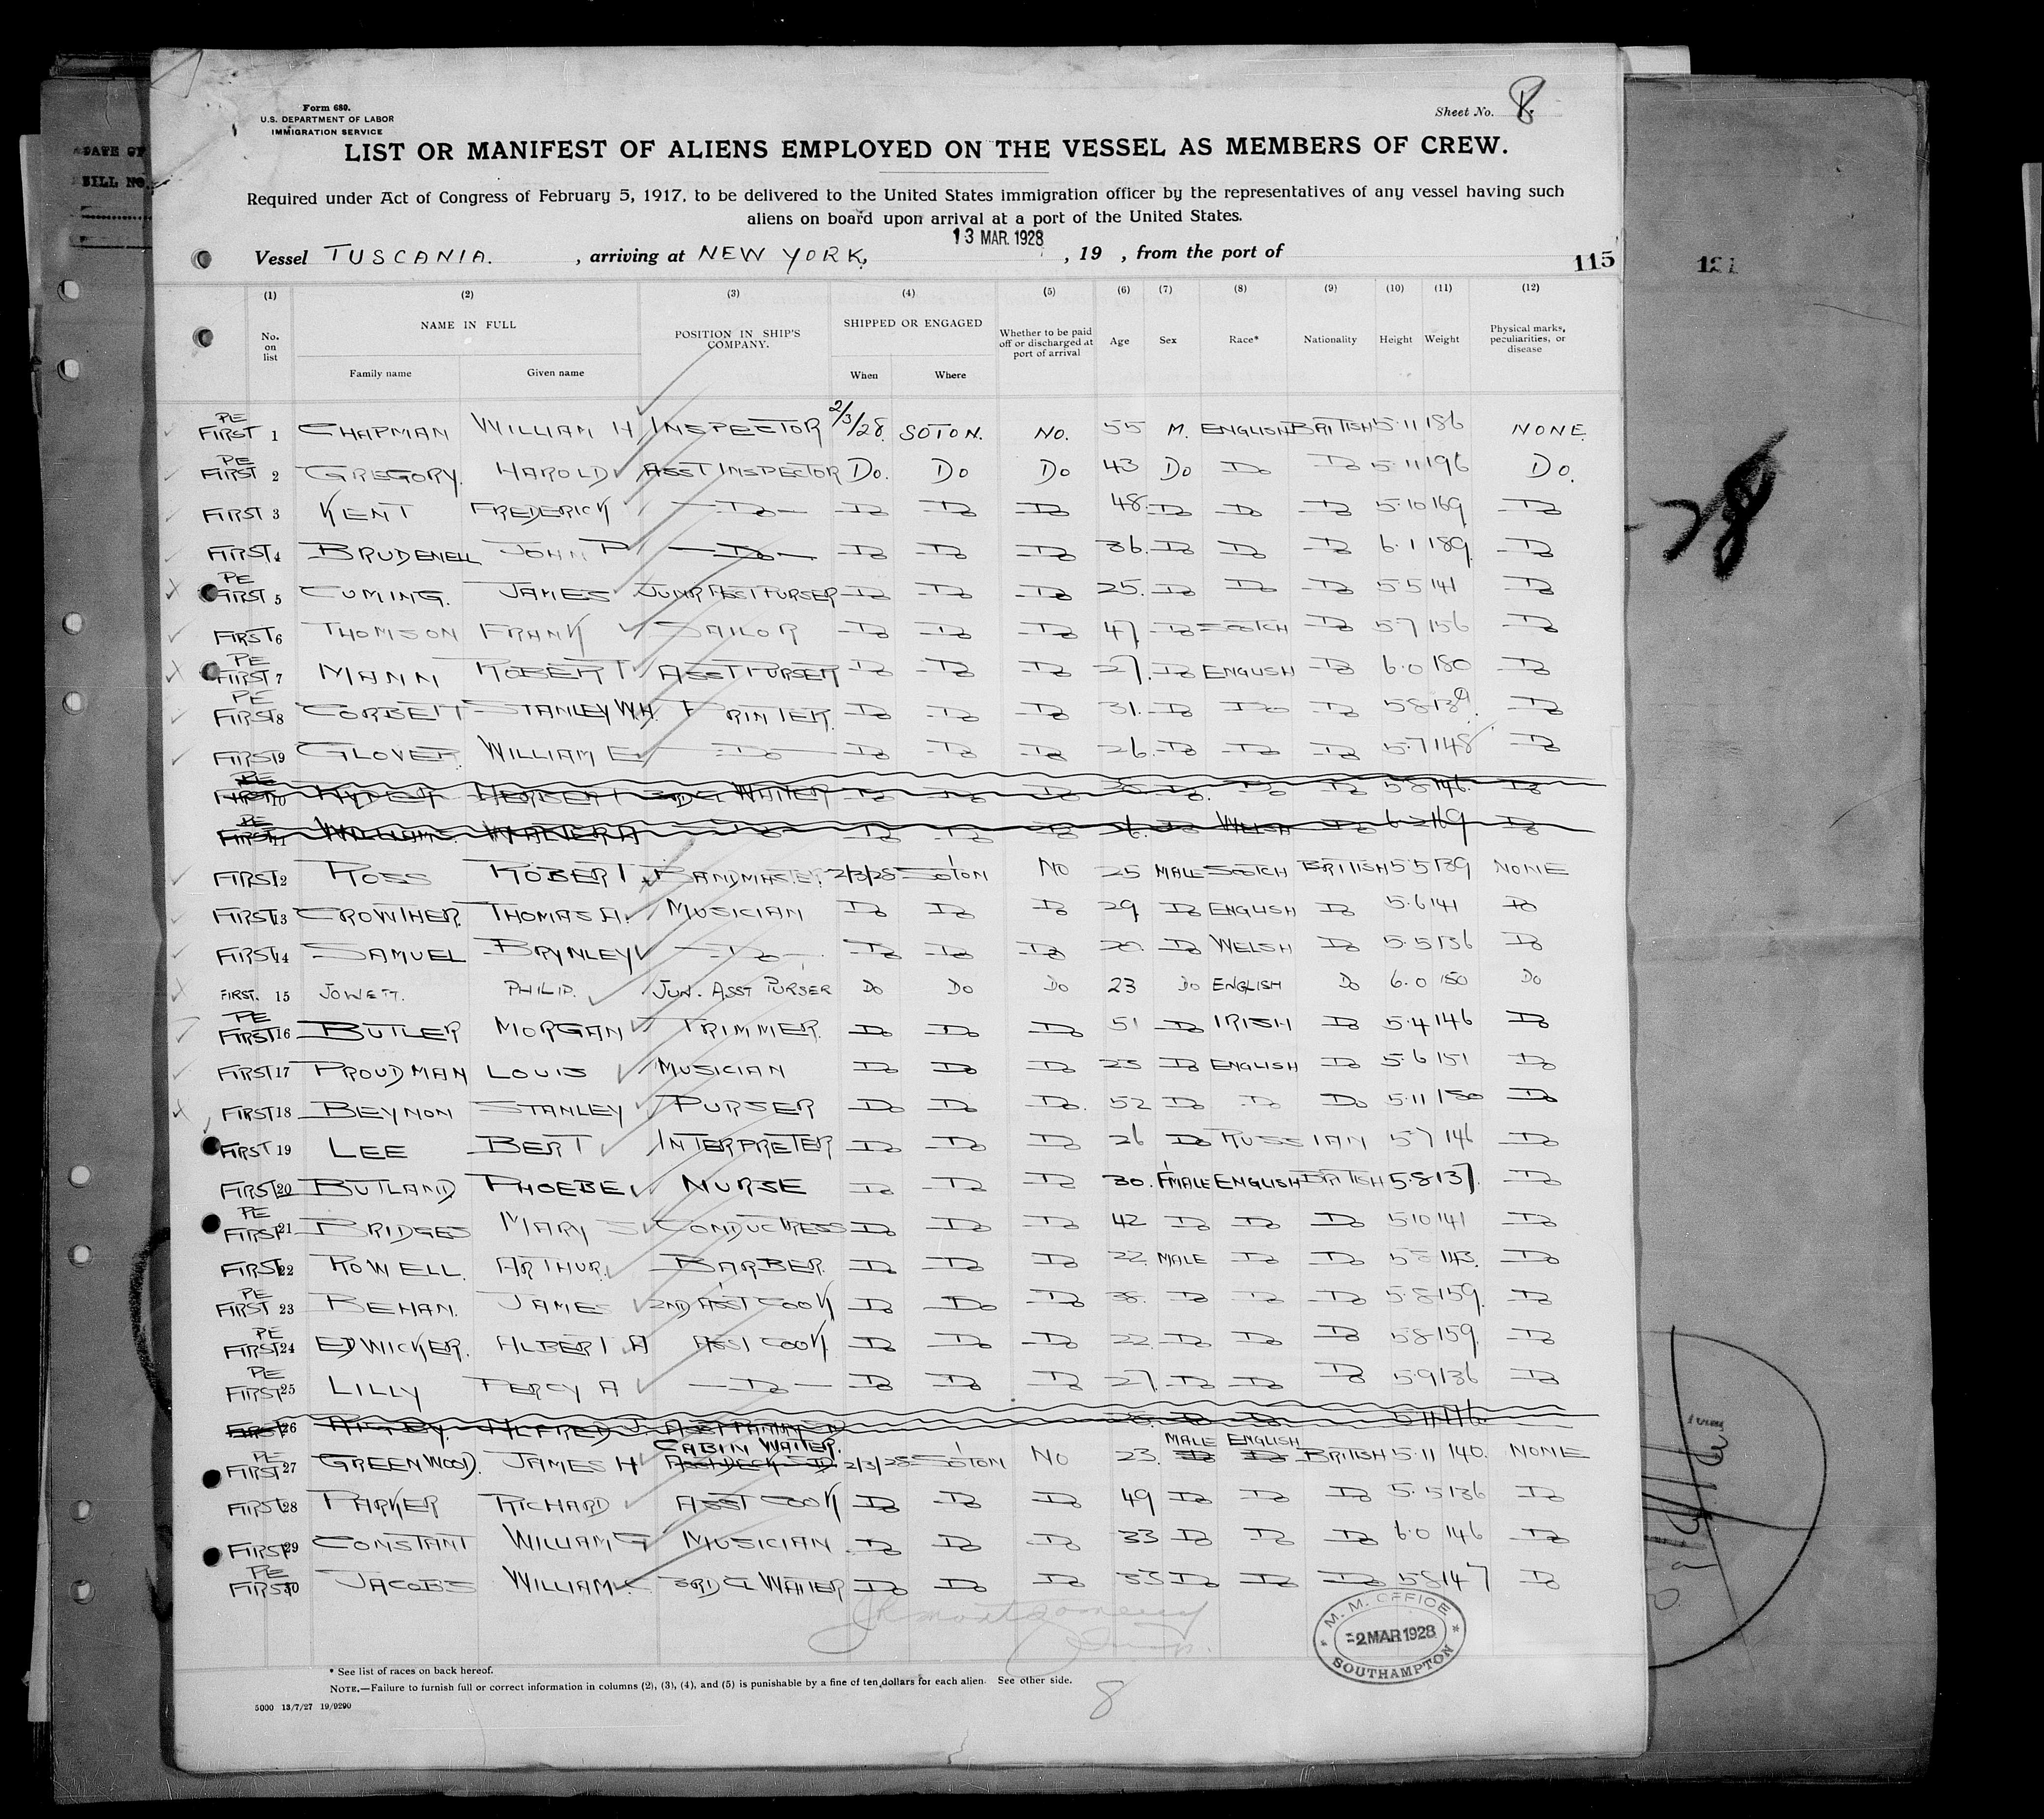 DATE OF
BILL NO.
Form 680.
U.S. DEPARTMENT OF LABOR
IMMIGRATION SERVICE
Sheet No. 8
LIST OR MANIFEST OF ALIENS EMPLOYED ON THE VESSEL AS MEMBERS OF CREW.
Required under Act of Congress of February 5, 1917, to be delivered to the United States immigration officer by the representatives of any vessel having such
aliens on board upon arrival at a port of the United States.
13 MAR. 1928
Vessel TUSCANIA. , arriving at NEW YORK, , 19 , from the port of
115
(1) (2) (3) (4) (5) (6) (7) (8) (9) (10) (11) (12)
No. on list NAME IN FULL Family name Given name POSITION IN SHIP'S COMPANY. SHIPPED OR ENGAGED When Where Whether to be paid off or discharged at port of arrival Age Sex Race* Nationality Height Weight Physical marks, peculiarities, or disease
PE FIRST 1 CHAPMAN WILLIAM H INSPECTOR 2/3/28. SOTON. NO. 55 M. ENGLISH BRITISH 5.11 186 NONE.
PE FIRST 2 GREGORY. HAROLD ASST INSPECTOR Do. Do Do 43 Do Do Do 5.11 196 Do.
FIRST 3 KENT FREDERICK Do Do Do Do 48 Do Do Do 5.10 169 Do
FIRST 4 BRUDENELL JOHN P Do Do Do Do 36. Do Do Do 6.1 189. Do
PE FIRST 5 CUMING. JAMES JUNR ASST PURSER Do Do Do 25. Do Do Do 5.5 141 Do
FIRST 6 THOMSON FRANK SAILOR Do Do Do 47 Do SCOTCH Do 5.7 156 Do
PE FIRST 7 MANN ROBERT ASST PURSER Do Do Do 27. Do ENGLISH Do 6.0 180 Do
PE FIRST 8 CORBETT STANLEY W.H. PRINTER. Do Do Do 31. Do Do Do 5.8 139. Do
FIRST 9 GLOVER. WILLIAM E Do Do Do Do 26. Do Do Do 5.7 148 Do
PE FIRST 10 HERBERT 3RD CL WAITER Do Do Do Do Do Do 5.8 146. Do
PE FIRST 11 WILLIAMS. WALTER A Do Do Do Do Do WELSH Do 6.2 169 Do
FIRST 12 ROSS ROBERT BANDMASTER. 2/3/28 SOTON NO 25 MALE SCOTCH BRITISH 5.5 139 NONE
FIRST 13 CROWTHER. THOMAS A. MUSICIAN Do Do Do 29 Do ENGLISH Do 5.6 141 Do
FIRST 14 SAMUEL BRYNLEY Do Do Do Do 20. Do WELSH Do 5.5 136 Do
FIRST. 15 JOWETT. PHILIP. JUN. ASST PURSER Do Do Do 23 Do ENGLISH Do 6.0 150 Do
PE FIRST 16 BUTLER MORGAN TRIMMER. Do Do Do 51 Do IRISH Do 5.4 146 Do
FIRST 17 PROUDMAN LOUIS MUSICIAN Do Do Do 23 Do ENGLISH Do 5.6 151 Do
FIRST 18 BEYNON STANLEY PURSER Do Do Do. 52 Do Do Do 5.11 180 Do
FIRST 19 LEE BERT INTERPRETER Do Do Do 26 Do RUSSIAN 5.7 146 Do
FIRST 20 BUTLAND PHOEBE NURSE Do Do Do 30. F'MALE ENGLISH BRITISH 5.8 137. Do
PE FIRST 21 BRIDGES MARY S CONDUCTRESS Do Do Do 42 Do Do Do 5.10 141 Do
FIRST 22 ROWELL. ARTHUR. BARBER. Do Do Do 22. MALE Do Do 5.8 143. Do
PE FIRST 23 BEHAN. JAMES 2ND ASST COOK Do Do Do 38. Do Do Do 5.8 159. Do
PE FIRST 24 EDWICKER. ALBERT A ASST COOK Do Do Do 22. Do Do Do 5.8 159. Do
PE FIRST 25 LILLY PERCY A Do Do Do Do 27. Do Do Do 5.9 136 Do
FIRST 26 ALFRED J. Do Do 5.11 146.
CABIN WAITER. MALE ENGLISH
PE FIRST 27 GREENWOOD. JAMES H ASST DECK STD 2/3/28 SOTON NO 23. Do Do BRITISH 5.11 140. NONE
FIRST 28 PARKER RICHARD ASST COOK Do Do Do 49 Do Do Do 5.5 136 Do
FIRST 29 CONSTANT WILLIAM G MUSICIAN Do Do Do 33 Do Do Do 6.0 146 Do
PE FIRST 30 JACOBS WILLIAM 3RD CL WAITER Do Do Do 33 Do Do Do 5.8 147 Do
M. M. OFFICE
-2 MAR 1928
SOUTHAMPTON
* See list of races on back hereof.
NOTE.—Failure to furnish full or correct information in columns (2), (3), (4), and (5) is punishable by a fine of ten dollars for each alien. See other side.
8
5000 13/7/27 19/9290